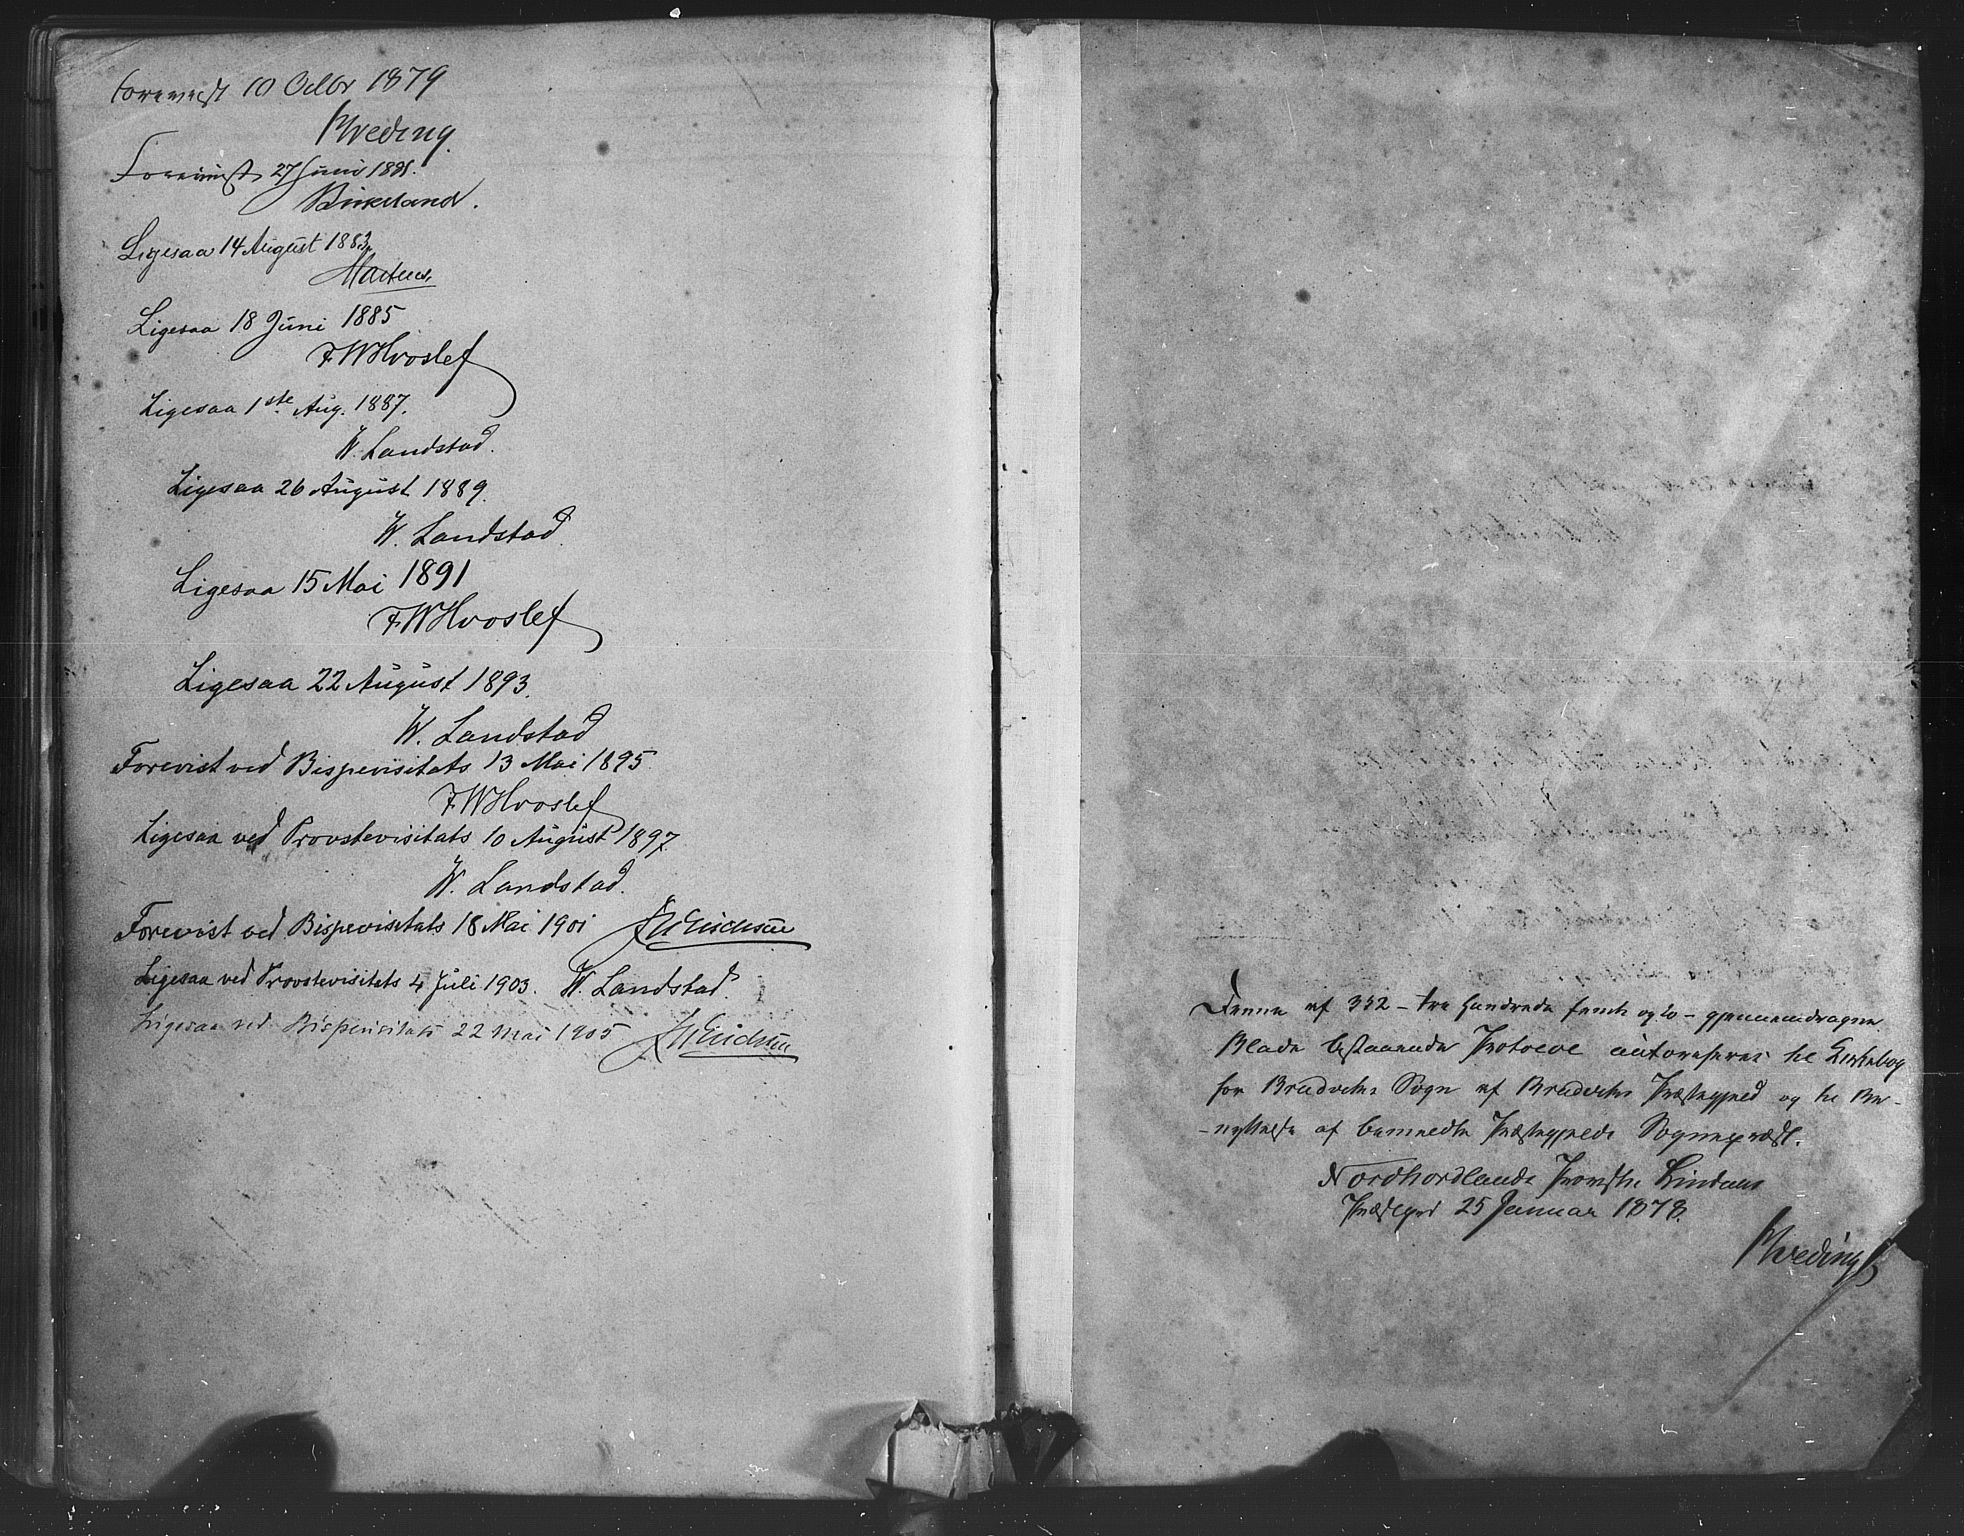 Forevist 10 Octbr 1879
Hveding.
Forevist 27 Juni 1881.
Birkeland.
Ligesaa 14 August 1883.
Martens.
Ligesaa 18 Juni 1885
F.W.Hvoslef
Ligesaa 1ste Aug. 1887.
W. Landstad.
Ligesaa 26 August 1889.
W. Landstad.
Ligesaa 15 Mai 1891
F.W.Hvoslef
Ligesaa 22 August 1893.
W. Landstad
Forevist ved Bispevisitats 13 Mai 1895.
F.W.Hvoslef
Ligesaa ved Provstevisitats 10 August 1897.
W. Landstad.
Forevist ved Bispevisitats 18 Mai 1901
Ligesaa ved Provstevisitats 4 Juli 1903. W. Landstad.
Ligesaa ved Bispevisitats 22 Mai 1905
Denne af 352 – tre hundrede femti og to – gjennemdragne
Blade bestaaende Protocol autoriseres til Kirkebog
for Bruviks Sogn af Bruviks Præstegjeld og til Be-
-nyttelse af bemeldte Præstegjelds Sogneprest.
Nordhordlands Provsti Lindaas
Præstegrd 25 Januar 1878.
Hveding